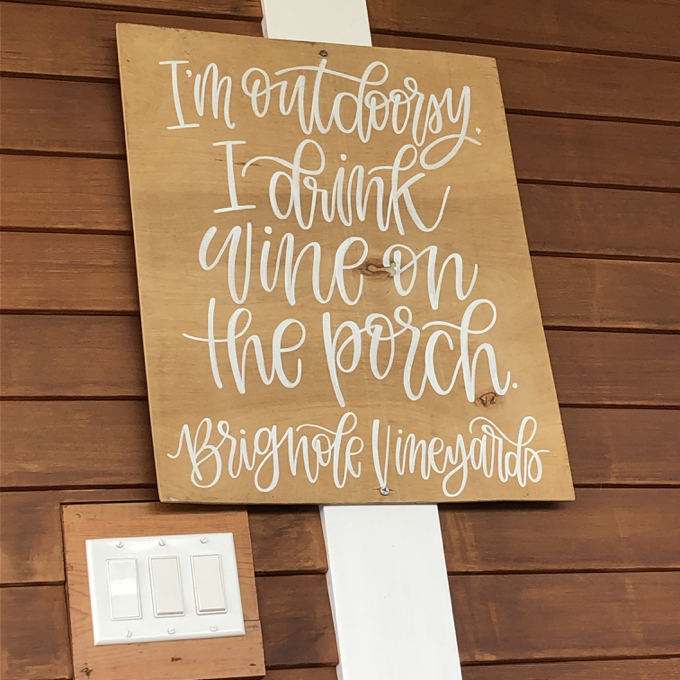 I'm outdoorsy.
I drink
wine on
the porch.
Brignole Vineyards